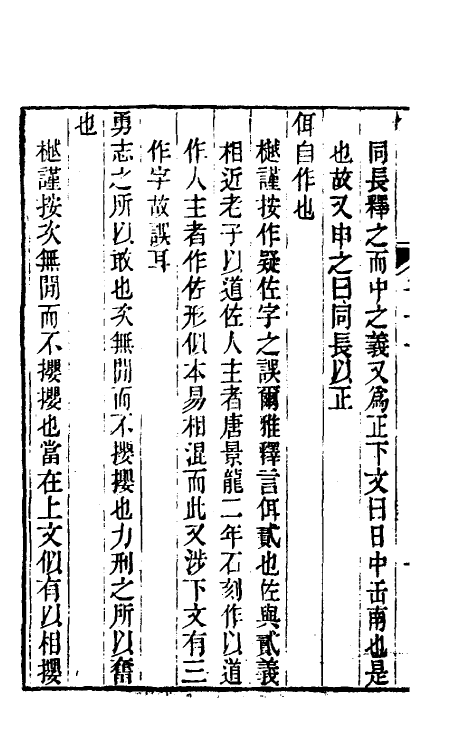 同長釋之而中之義又爲正下文曰日中缶南也是
也故又申之曰同長以正
佴自作也
樾謹按作疑佐字之誤爾雅釋言佴貳也佐與貳義
相近老子以道佐人主者唐景龍二年石刻作以道
作人主者作佐形似本易相混而此又涉下文有三
作字故誤耳
勇志之所以敢也次無閒而不攖攖也力刑之所以奮
也
樾謹按次無閒而不攖攖也當在上文似有以相攖